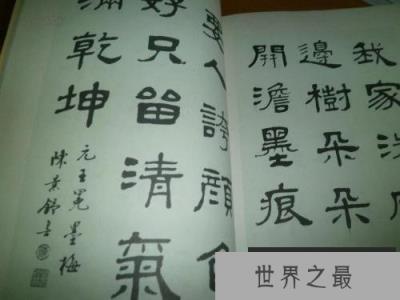 我家洗
邊樹朵朵
開澹墨痕
要人誇顏色
好只留清氣
滿乾坤
元王冕墨梅
陳景舒书
世界之最